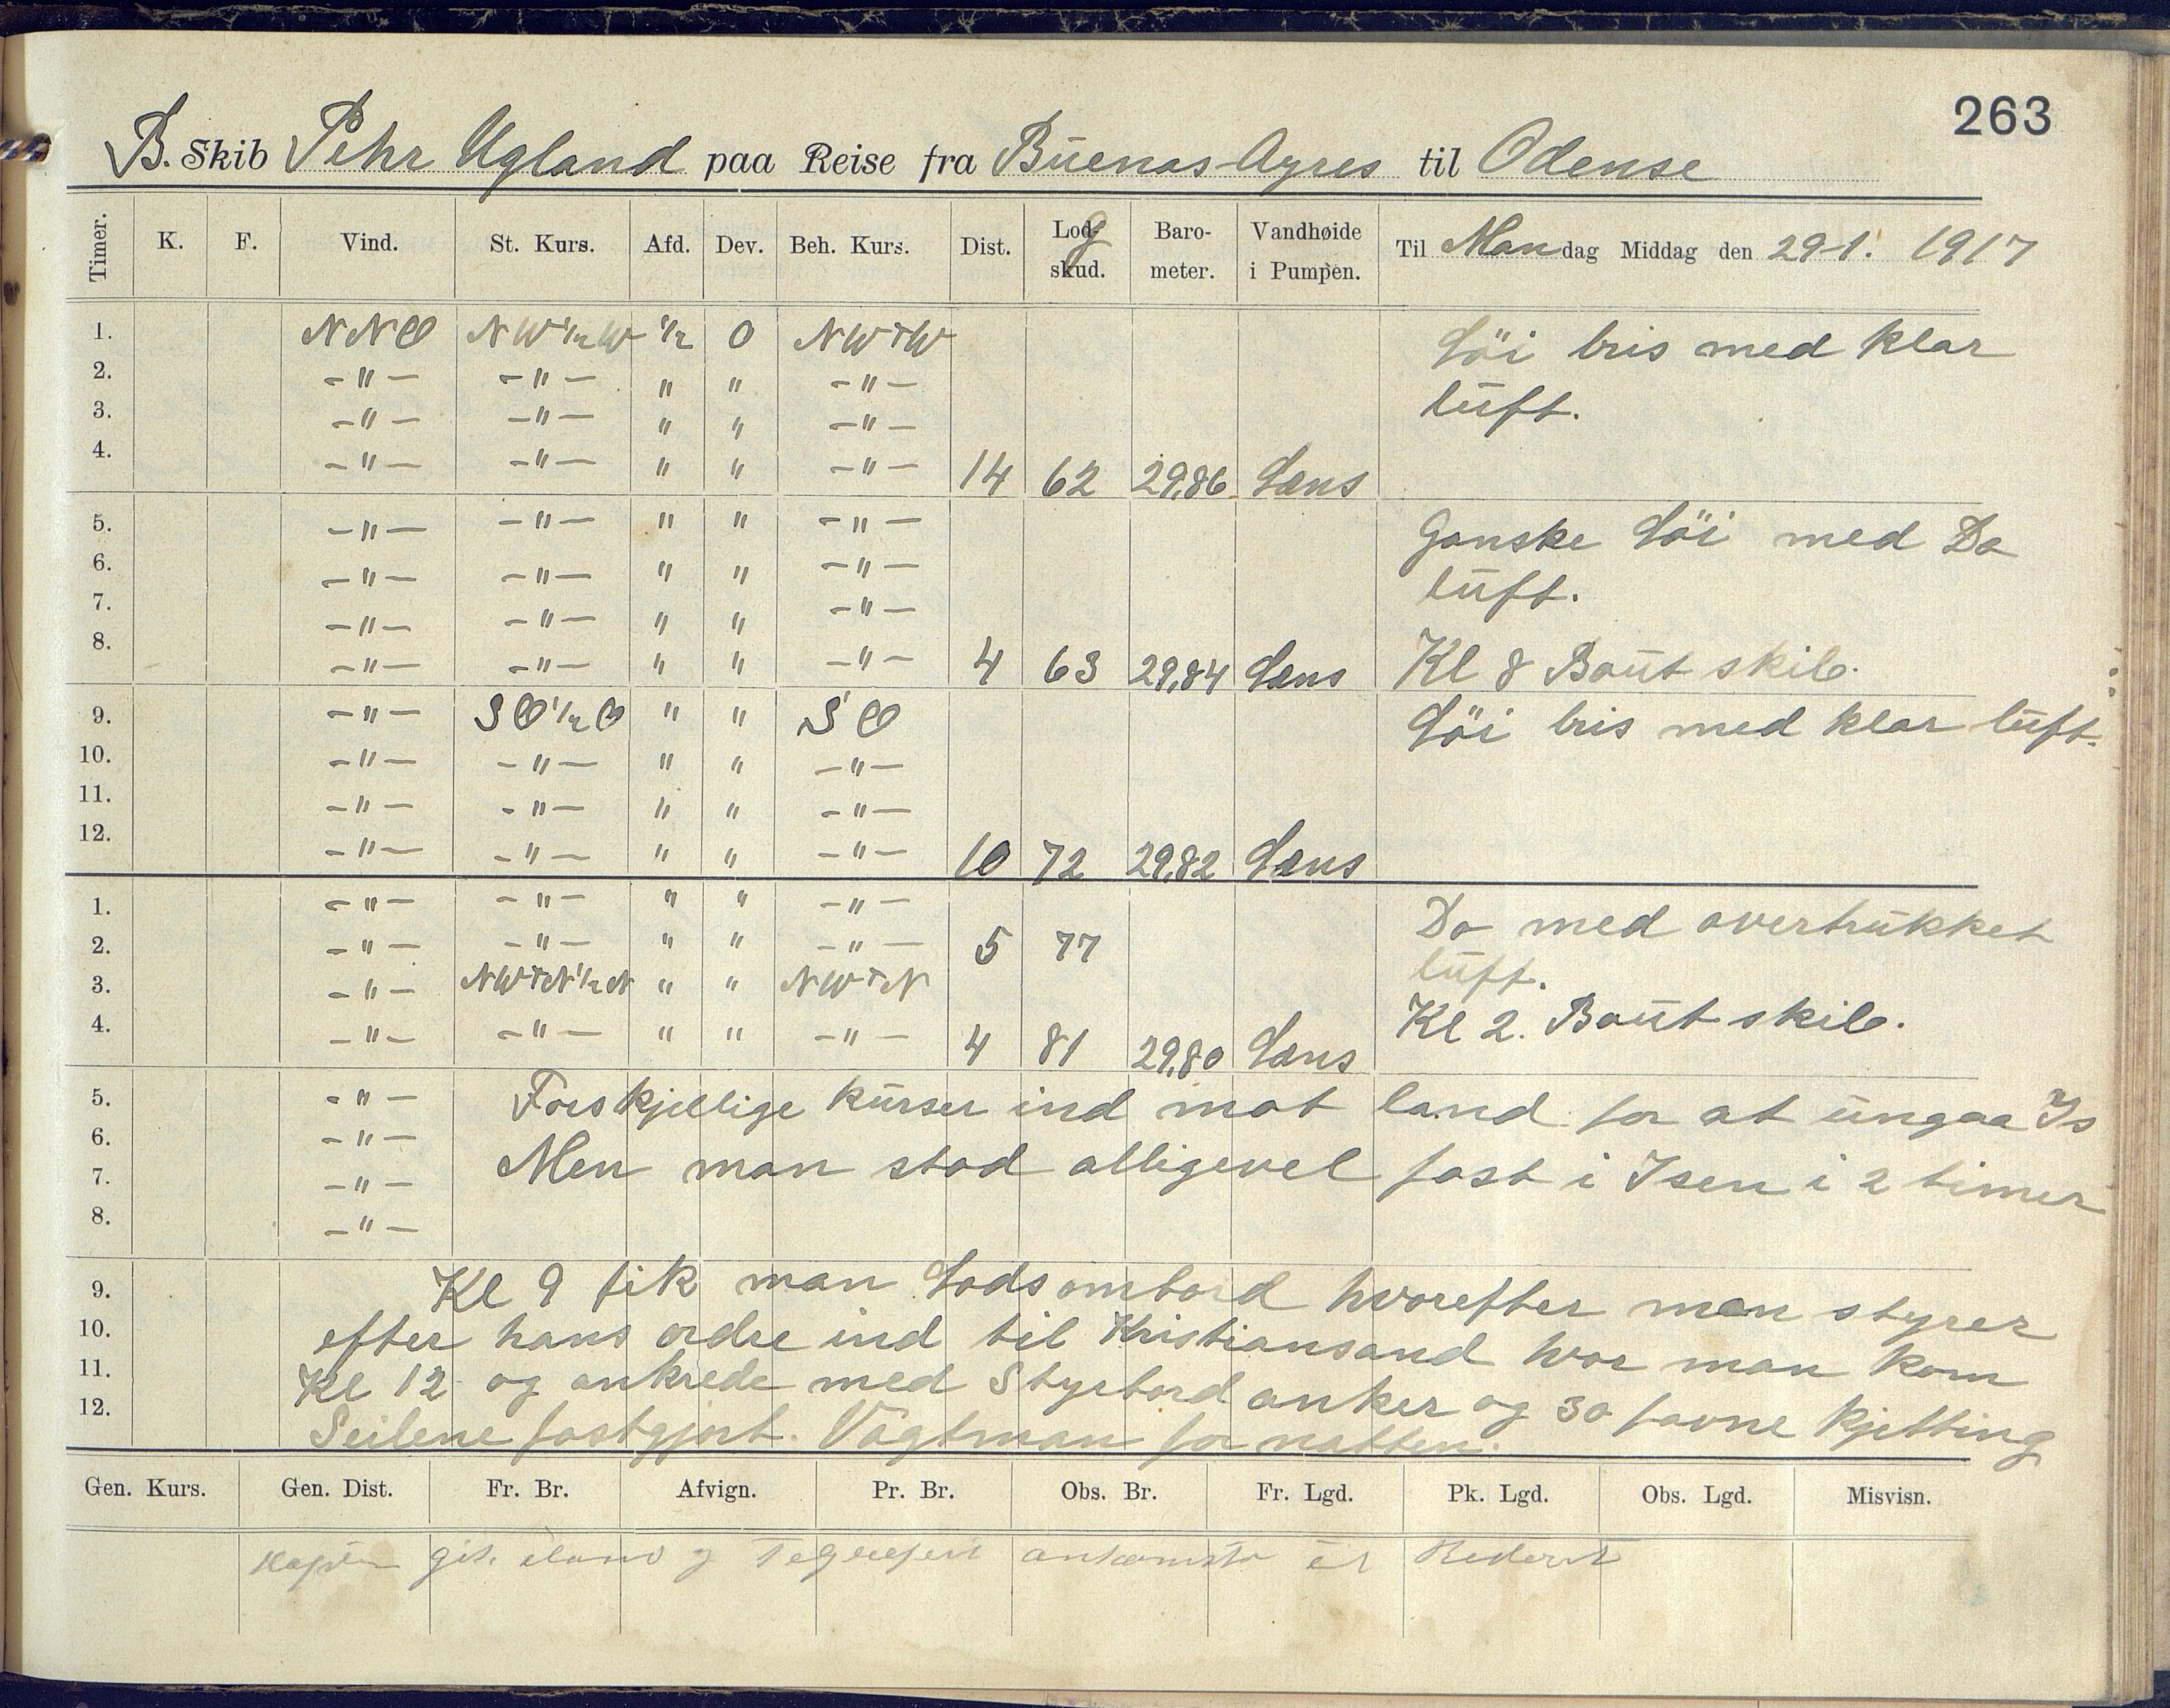 263
B. Skib Pehr Ugland paa Reise fra Buenas-Ayres til Odense
Timer. K. F. Vind. St. Kurs. Afd. Dev. Beh. Kurs. Dist. Logskud. Barometer. Vandhøide i Pumpen. Til Mandag Middag den 29-1. 1917
1. NNO NW½W ½ 0 NWTW Löi bris med klar
2. -"- -"- " " -"- luft.
3. -"- -"- " " -"-
4. -"- -"- " " -"- 14 62 29,86 Læns
5. -"- -"- " " -"- Ganske Löi med Do
6. -"- -"- " " -"- luft.
7. -"- -"- " " -"-
8. -"- -"- " " -"- 4 63 29,84 Læns Kl 8 Baut skib.
9. -"- SO½O " " SO Löi bris med klar luft.
10. -"- -"- " " -"-
11. -"- -"- " " -"-
12. -"- -"- " " -"- 10 72 29,82 Læns
1. -"- -"- " " -"- Do med overtrukket
2. -"- -"- " " -"- 5 77 luft.
3. -"- NWTN½N " " NWTN Kl 2. Baut skib.
4. -"- -"- " " -"- 4 81 29,80 Læns
5. -"- Forskjellige kurser ind mot land for at ungaa Is
6. -"- Men man stod alligevel fast i Isen i 2 timer
7. -"-
8. -"-
9. Kl 9 fik man Lods ombord hvorefter man styrer
10. efter hans ordre ind til Kristiansand hvor man kom
11. Kl 12 og ankrede med Styrbord anker og 30 favne Kjetting
12. Seilene fastgjort. Vagtman for natten.
Gen. Kurs. Gen. Dist. Fr. Br. Afvign. Pr. Br. Obs. Br. Fr. Lgd. Pk. Lgd. Obs. Lgd. Misvisn.
og ankomst Rederiet